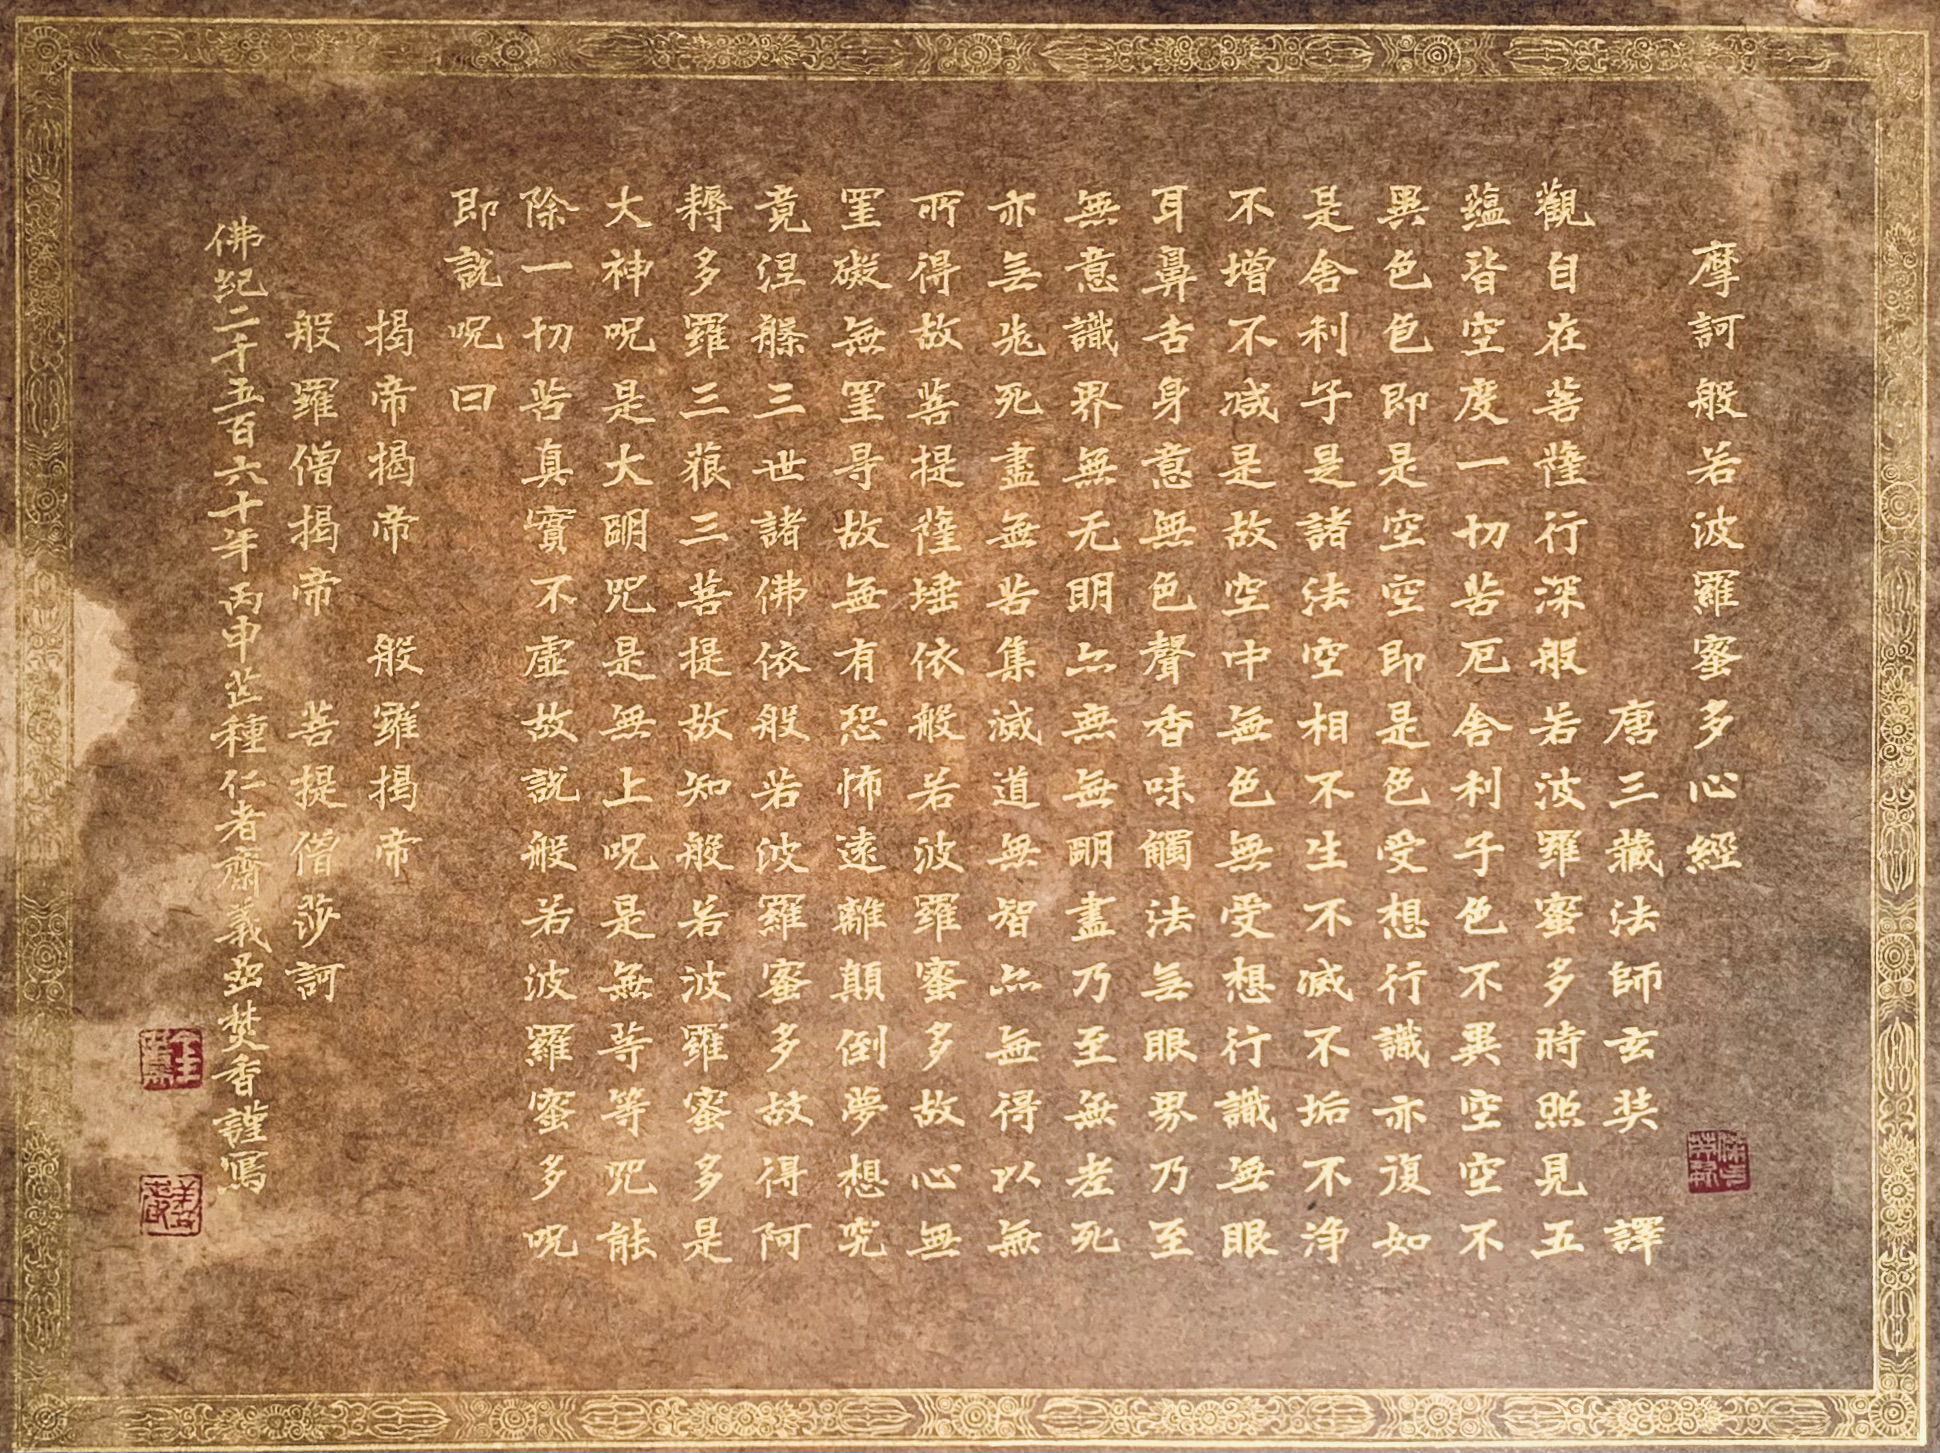 摩訶般若波羅蜜多心經
唐三藏法師玄奘 譯
觀自在菩薩行深般若波羅蜜多時照見五
蘊皆空度一切苦厄舍利子色不異空空不
異色色即是空空即是色受想行識亦復如
是舍利子是諸法空相不生不滅不垢不淨
不增不減是故空中無色無受想行識無眼
耳鼻舌身意無色聲香味觸法无眼界乃至
無意識界無无明亦無無明盡乃至無老死
亦无老死盡無苦集滅道無智亦無得以無
所得故菩提薩埵依般若波羅蜜多故心無
罣礙無罣㝵故無有恐怖遠離顛倒夢想究
竟涅槃三世諸佛依般若波羅蜜多故得阿
耨多羅三藐三菩提故知般若波羅蜜多是
大神呪是大明咒是無上呪是無等等咒能
除一切苦真實不虛故說般若波羅蜜多呪
即說呪曰
揭帝揭帝 般羅揭帝
般羅僧揭帝 菩提僧莎訶
佛紀二千五百六十年丙申芒種仁者齋義丞焚香謹寫